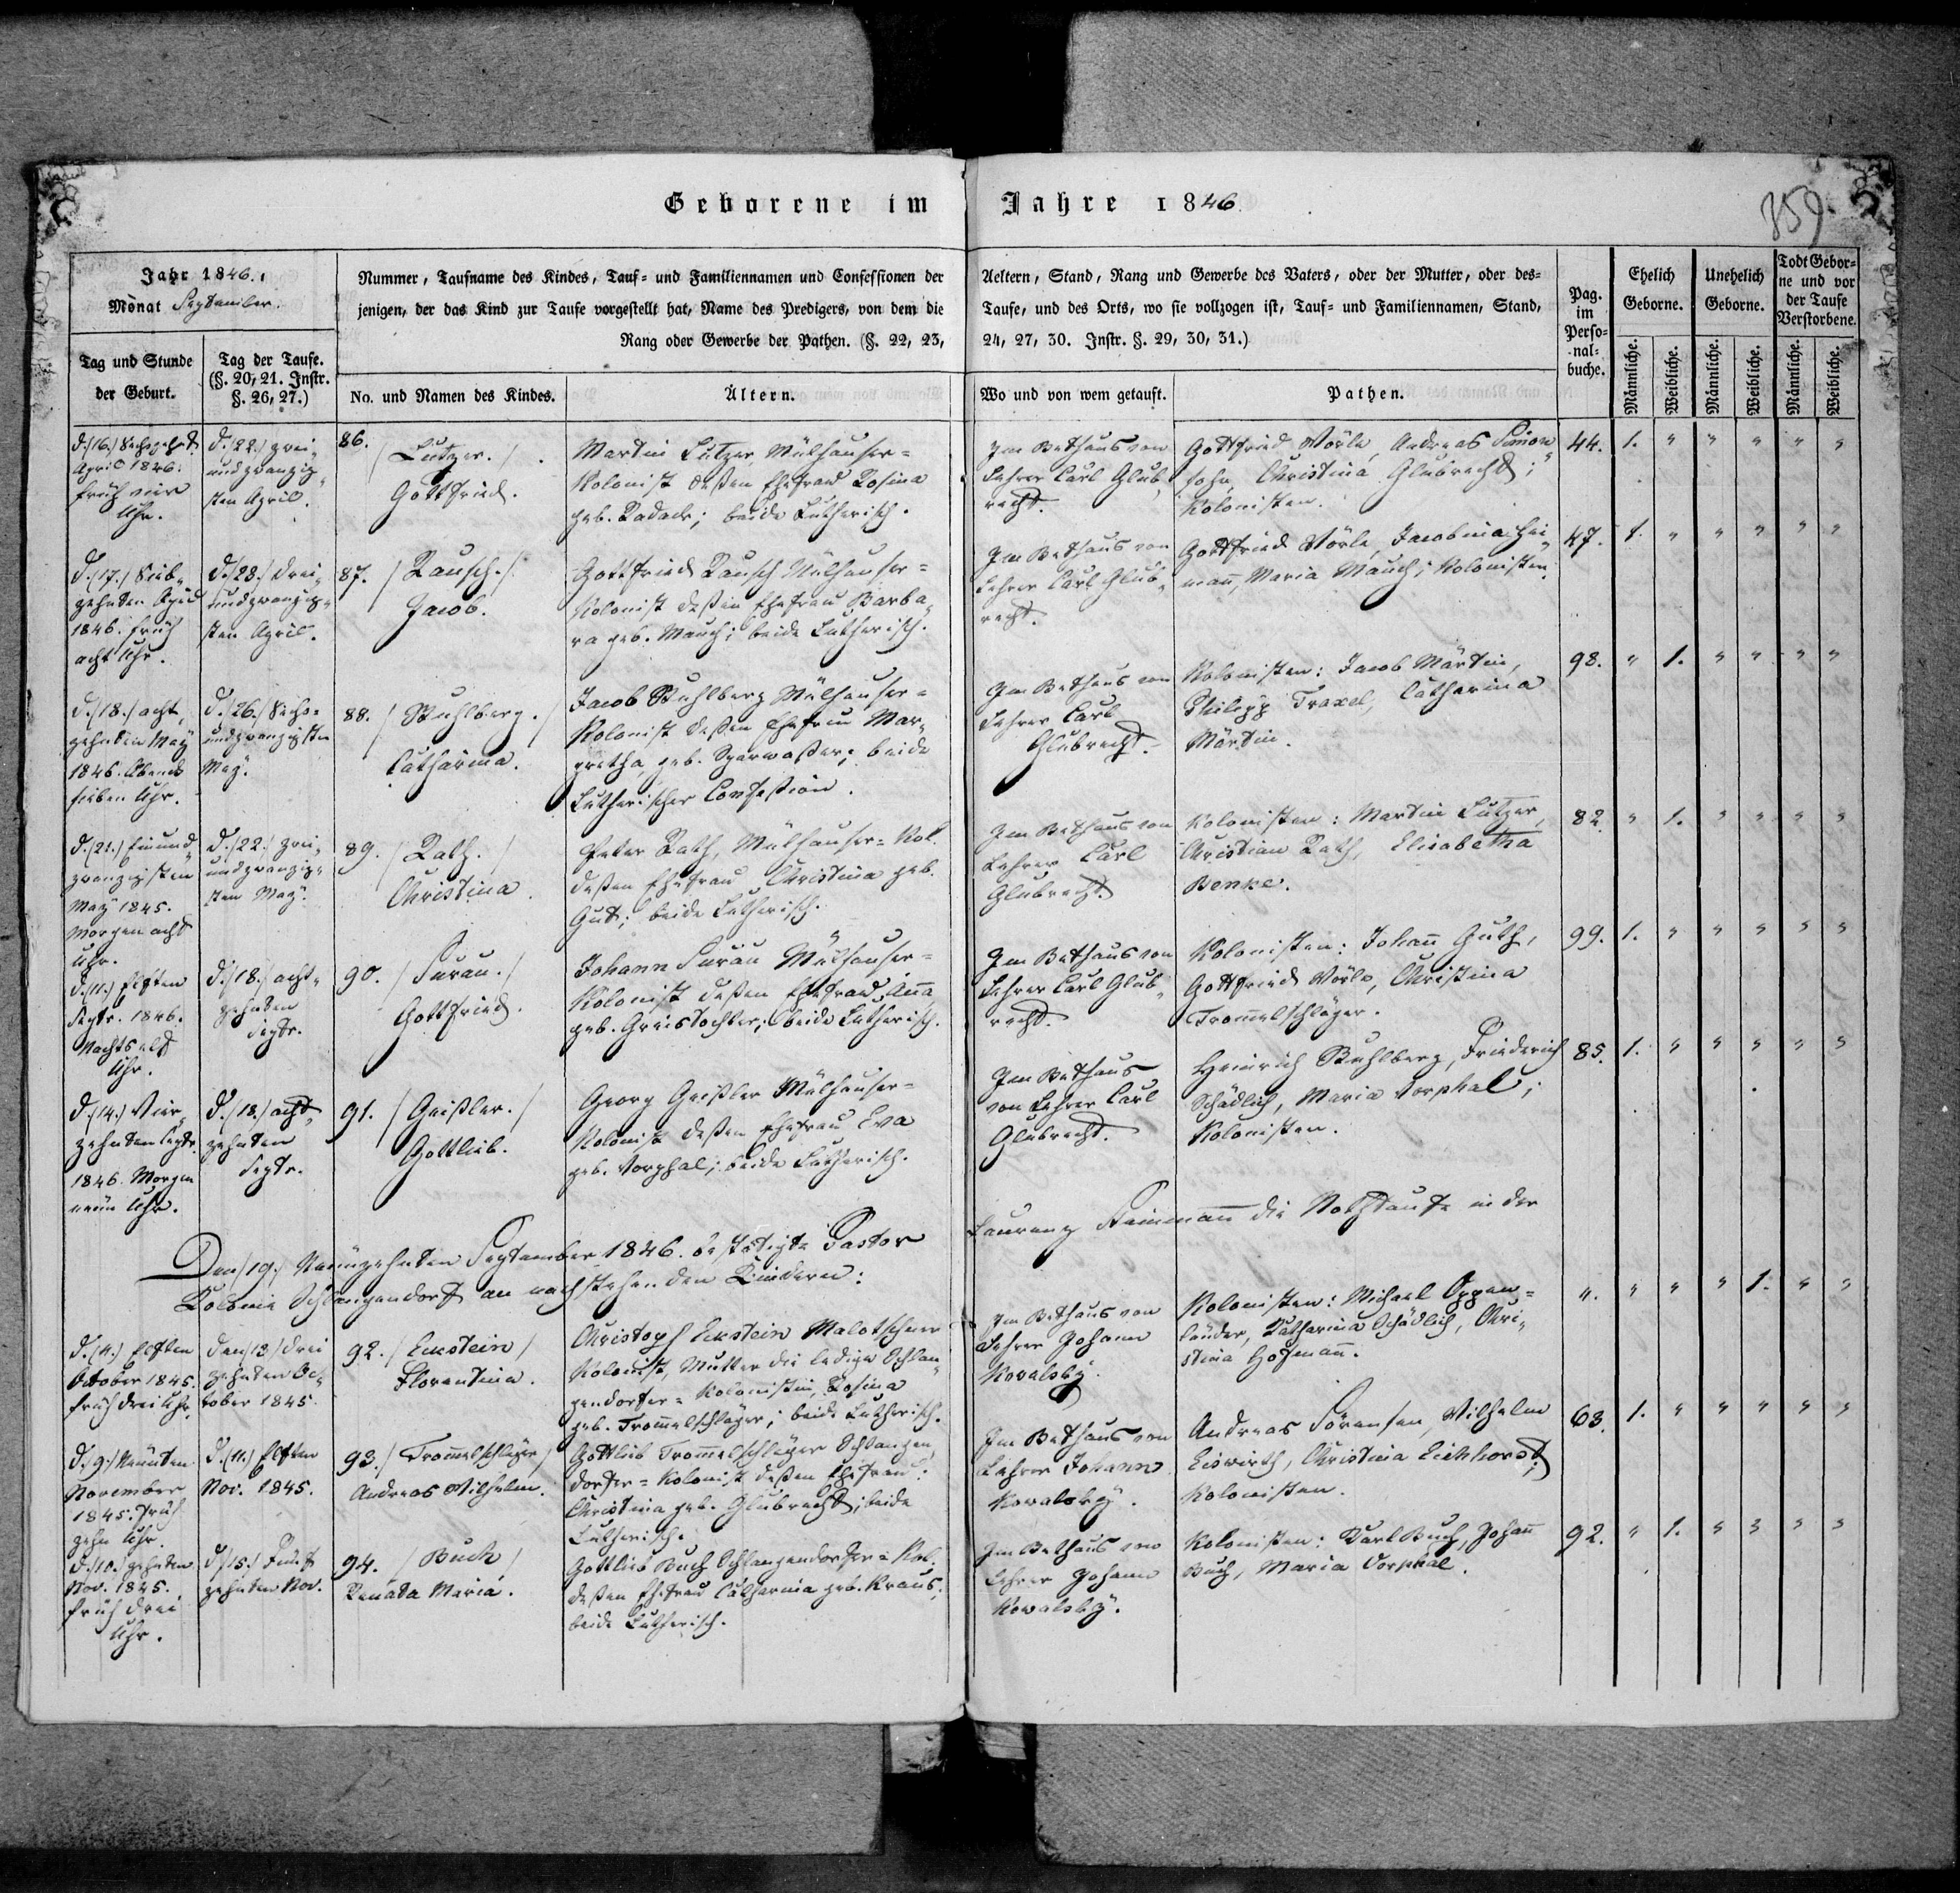 Geborene im Jahre 1846.
359.
Jahr 1846.
Monat September.
Nummer, Taufname des Kindes, Tauf- und Familiennamen und Confessionen der Aeltern, Stand, Rang und Gewerbe des Vaters, oder der Mutter, oder des-
jenigen, der das Kind zur Taufe vorgestellt hat, Name des Predigers, von dem die Taufe, und des Orts, wo sie vollzogen ist, Tauf- und Familiennamen, Stand,
Rang oder Gewerbe der Pathen. (§. 22, 23, 24, 27, 30. Instr. §. 29, 30, 31.)
Pag.
im
Perso-
nal-
buche.
Ehelich
Geborne.
Unehelich
Geborne.
Todt Gebor-
ne und vor
der Taufe
Verstorbene.
Tag und Stunde
der Geburt.
Tag der Taufe.
(§. 20, 21. Instr.
§. 26, 27.)
No. und Namen des Kindes.
Ältern.
Wo und von wem getauft.
Pathen.
Männliche.
Weibliche.
Männliche.
Weibliche.
Männliche.
Weibliche.
d. (16.) Sechzehnt.
April 1846.
früh vier
Uhr.
d. (22.) zwei-
undzwanzig-
sten April.
86.
/Lutzer./
Gottfried.
Martin Lutzer, Mülhauser-
Kolonist dessen Ehefrau Rosina
geb. Radack; beide Lutherisch.
Im Bethaus von
Lehrer Carl Glub-
recht.
Gottfried Wörle, Andreas Simon
sohn, Christina Glubrecht;
Kolonisten.
44. 1. " " " " "
d. (17.) Sieb-
zehnten April
1846. früh
acht Uhr.
d. (23.) drei-
undzwanzig-
sten April.
87.
/Rausch./
Jacob.
Gottfried Rausch Mülhauser-
Kolonist dessen Ehefrau Barba-
ra geb. Mauch; beide Lutherisch.
Im Bethaus von
Lehrer Carl Glub-
recht.
Gottfried Wörle, Jacobina Hei-
mann, Maria Mauch; Kolonisten.
47. 1. " " " " "
d. (18.) acht-
zehnten May
1846. Abends
sieben Uhr.
d. (26.) Sechs-
undzwanzigsten
May.
88.
/Stuhlberg./
Catharina.
Jacob Stuhlberg Mülhauser-
Kolonist dessen Ehefrau Mar-
gretha, geb. Sparwasser; beide
Lutherischer Confession.
Im Bethaus von
Lehrer Carl
Glubrecht.
Kolonisten: Jacob Märtin,
Philipp Traxel, Catharina
Märtin.
98. " 1. " " " "
d. (21.) Einund-
zwanzigsten
May 1845.
Morgen acht
Uhr.
d. (22.) zwei-
undzwanzig-
sten May.
89.
/Rath./
Christina
Peter Rath, Mülhauser-Kol.
dessen Ehefrau Christina geb.
Gut; beide Lutherisch.
Im Bethaus von
Lehrer Carl
Glubrecht.
Kolonisten: Martin Lutzer,
Christian Rath, Elisabetha
Benke.
82. " 1. " " " "
d. (11.) Elften
Septr. 1846.
Nachts elf
Uhr.
d. (18.) acht-
zehnten
Septr.
90.
/Surau./
Gottfried.
Johann Surau Mülhauser-
Kolonist dessen Ehefrau Anna
geb. Greistochter; beide Lutherisch.
Im Bethaus von
Lehrer Carl Glub-
recht.
Kolonisten: Johann Guth,
Gottfried Wörle, Christina
Trommelschläger.
99. 1. " " " " "
d. (14.) Vier-
zehnten Septr.
1846. Morgen
neun Uhr.
d. (18.) acht-
zehnten
Septr.
91.
/Geißler./
Gottlieb.
Georg Geißler Mülhauser-
Kolonist dessen Ehefrau Eva
geb. Vorphal; beide Lutherisch.
Im Bethaus
von Lehrer Carl
Glubrecht.
Heinrich Stuhlberg, Friederich
Schädlich, Maria Vorphal;
Kolonisten.
85. 1. " " " " "
Den (19.) Neunzehnten September 1846. bestätigte Pastor Laurenz Heinmann die Nothtaufe in der
Kolonie Schlangendorf an nachstehenden Kindern:
d. (11.) Elften
October 1845.
früh drei Uhr.
den (13) drei
zehnten Oc-
tober 1845.
92. /Eckstein/
Florentina.
Christoph Eckstein Malotschner
Kolonist, Mutter die ledige Schlan-
gendorfer-Kolonistin, Rosina
geb. Trommelschläger; beide Lutherisch.
Im Bethaus von
Lehrer Johann
Kovalsky.
Kolonisten: Michael Oppen-
länder, Katharina Schädlich, Chri-
stina Hofmann.
". " " " 1. " "
d. (9.) Neunten
November
1845. früh
zehn Uhr.
d. (11.) Elften
Nov. 1845.
93. /Trommelschläger/
Andreas Wilhelm.
Gottlieb Trommelschläger Schlangen-
dorfer-Kolonist dessen Ehefrau:
Christina geb. Glubrecht; beide
Lutherisch.
Im Bethaus von
Lehrer Johann
Kovalsky.
Andreas Sörensen, Wilhelm
Eiswirth, Christina Eichhorst;
Kolonisten.
63. 1. " " " " "
d. (10.) zehnten
Nov. 1845.
früh drei
Uhr.
d. (15.) Funf-
zehnten Nov.
94. /Buch/
Renata Maria.
Gottlieb Buch Schlangendorfer-Kol.
dessen Ehefrau Catharina geb. Kraus;
beide Lutherisch.
Im Bethaus von
Lehrer Johann
Kovalsky.
Kolonisten: Karl Buch, Johann
Buch, Maria Vorphal.
92. " 1. " " " "